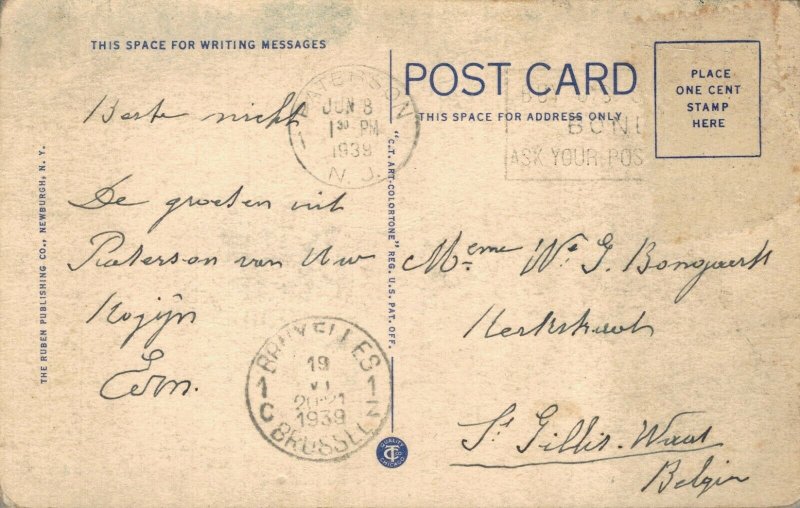 THIS SPACE FOR WRITING MESSAGES
Beste nicht
De groeten uit
Paterson van Uw
Kozijn
Edm.
THE RUBEN PUBLISHING CO., NEWBURGH, N. Y.
"C.T. ART-COLORTONE" REG. U.S. PAT. OFF.
PATERSON
JUN 8
1 30 PM
1939
N.J.
1
POST CARD
THIS SPACE FOR ADDRESS ONLY
ASK YOUR POS
PLACE
ONE CENT
STAMP
HERE
Meme We G. Bongaerts
Kerkstraat
St Gillis-Waas
Belgie
BRUXELLES
19
VI
20-21
1939
BRUSSEL
1 C
QUALITY
CT CO
CHICAGO